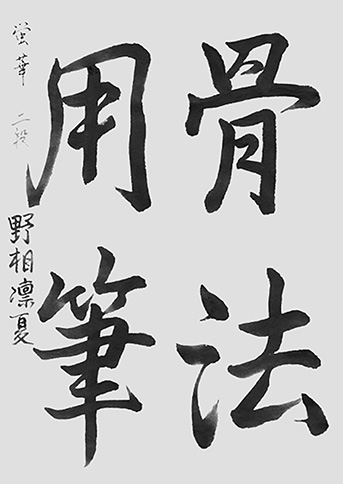 骨法
用筆
蛍華 二段
野相凛夏